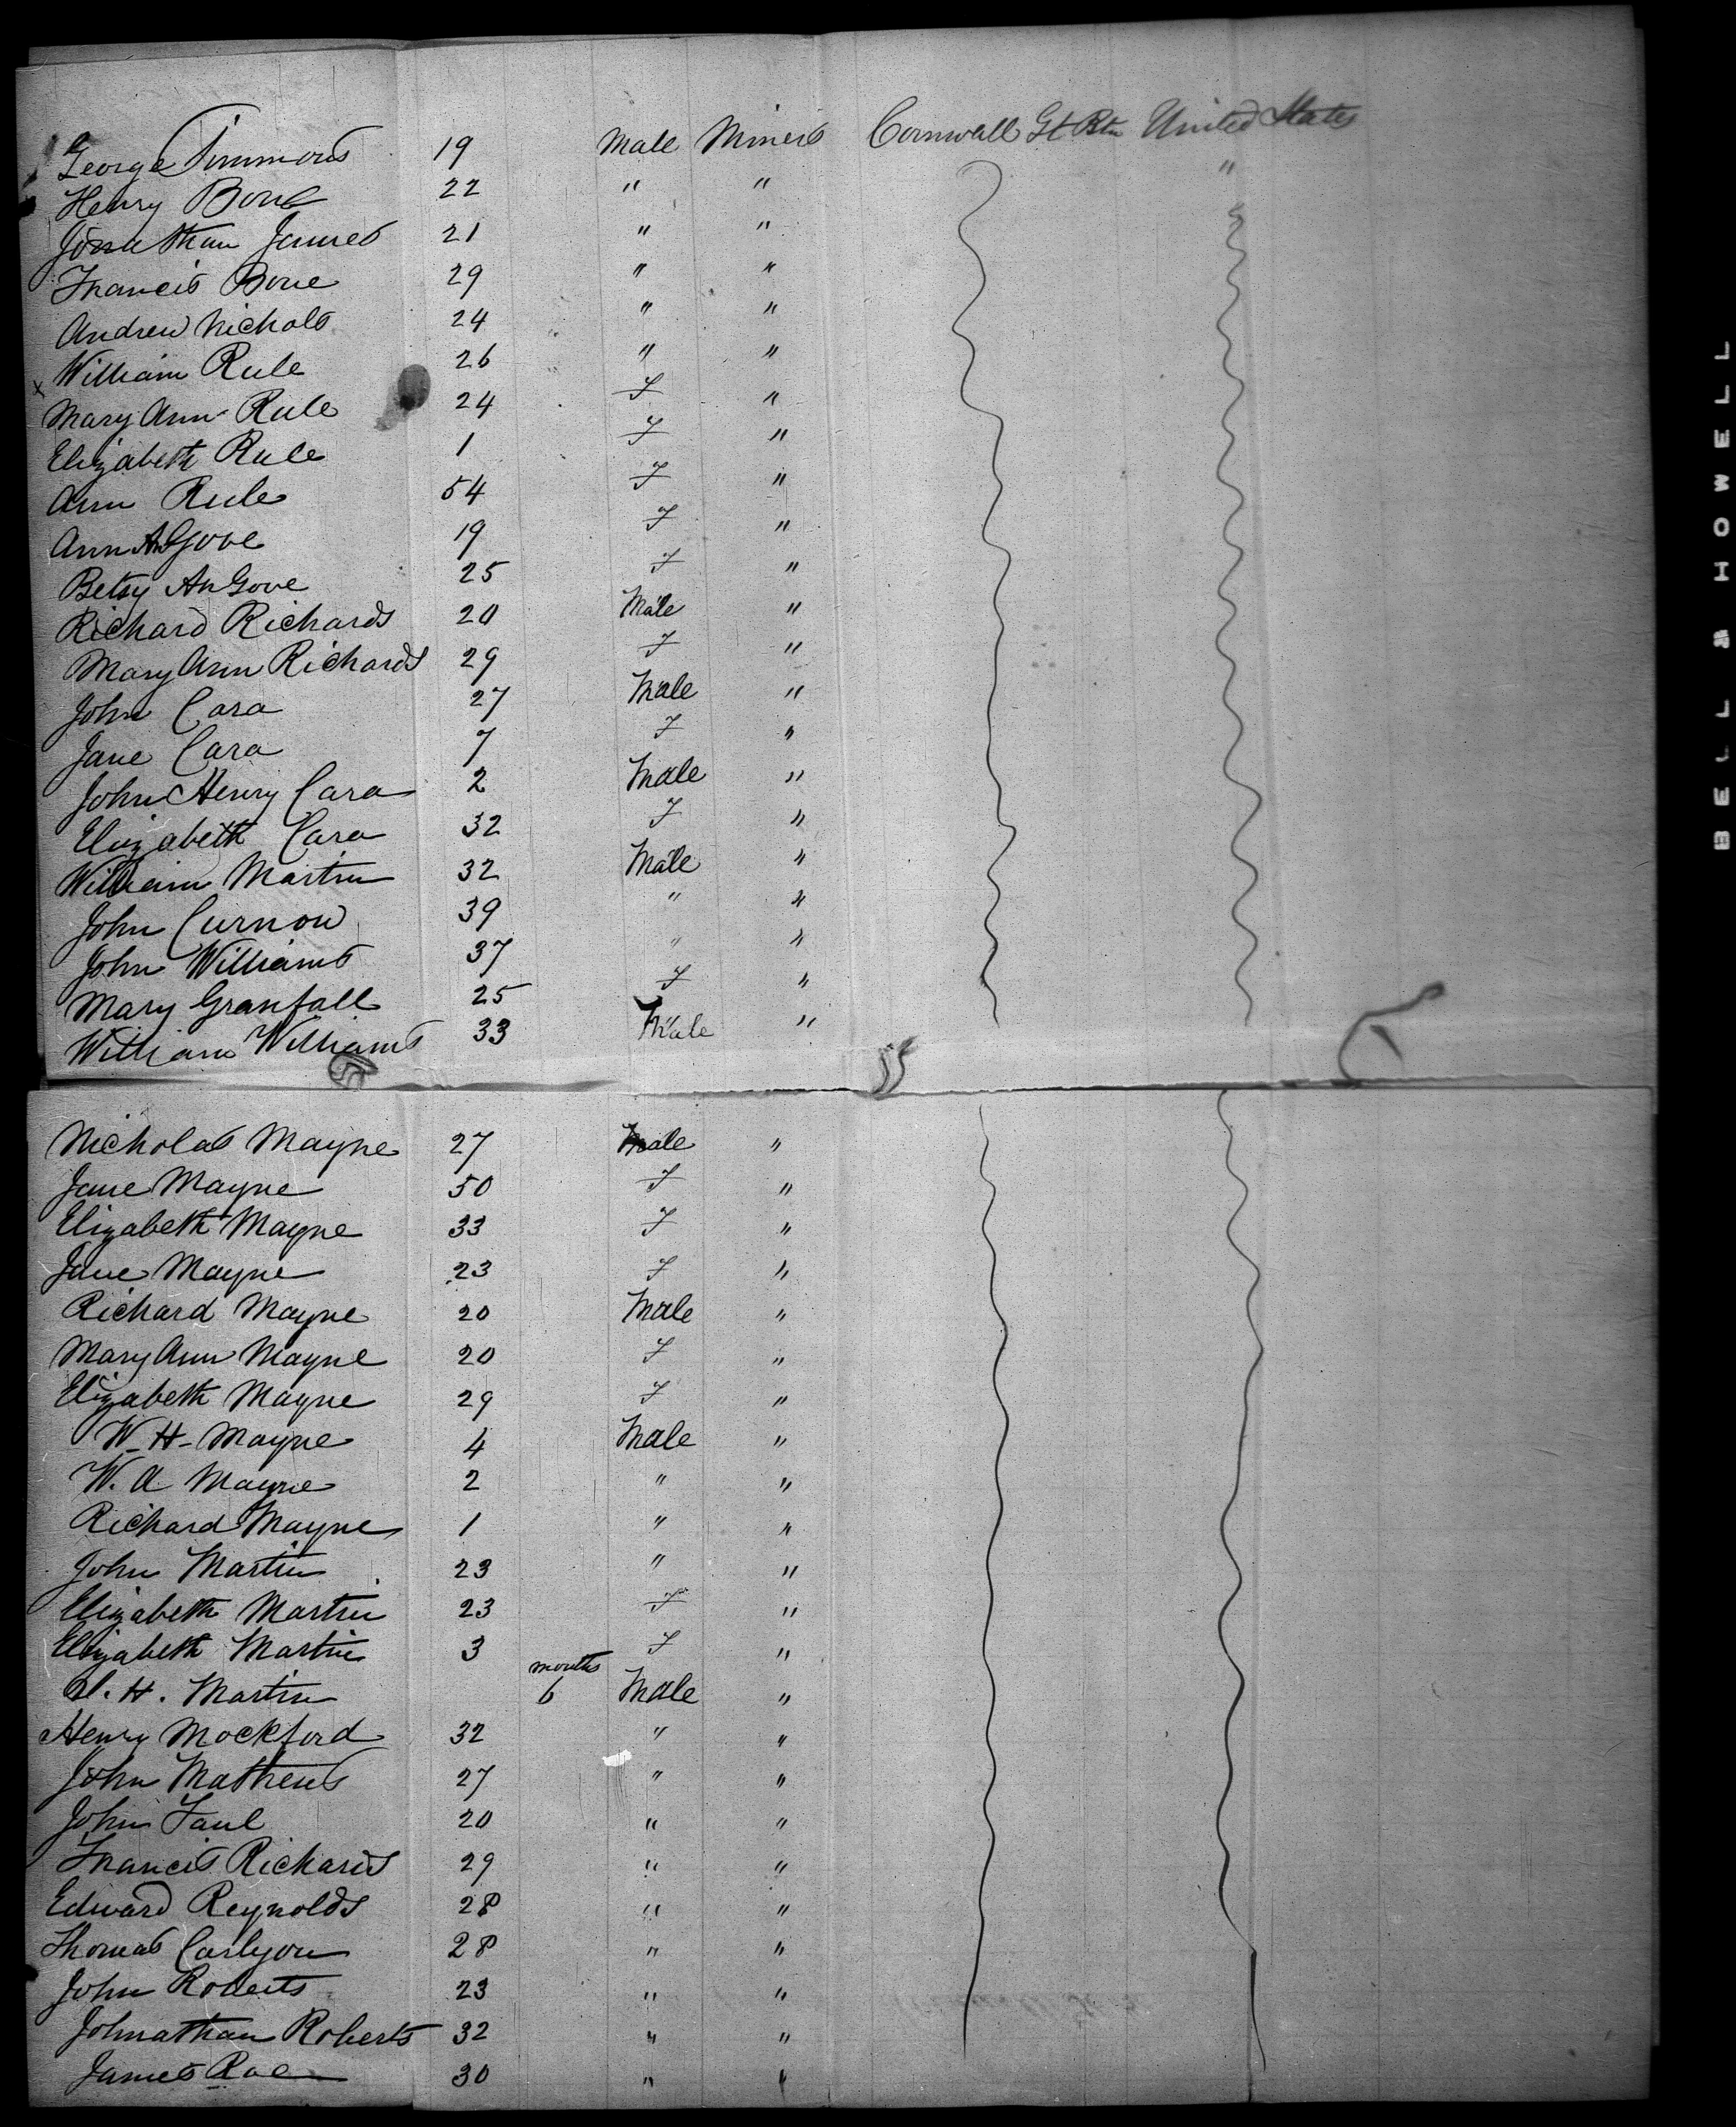 George Simmons 19 Male Miners Cornwall Gt Btn United States
Henry Bone 22 " " "
Jonathan James 21 " " "
Francis Bone 29 " "
Andrew Nichols 24 " "
x William Rule 26 " "
Mary Ann Rule 24 F "
Elizabeth Rule 1 F "
Ann Rule 54 F "
Ann AnGove 19 F "
Betsy AnGove 25 F "
Richard Richards 20 Male "
Mary Ann Richards 29 F "
John Cara 27 Male "
Jane Cara 7 F "
John Henry Cara 2 Male "
Elizabeth Cara 32 F "
William Martin 32 Male "
John Curnow 39 " "
John Williams 37 " "
Mary Granfall 25 F "
William Williams 33 Male "
Nicholas Mayne 27 Male "
Jane Mayne 50 F "
Elizabeth Mayne 33 F "
Jane Mayne 23 F "
Richard Mayne 20 Male "
Mary Ann Mayne 20 F "
Elizabeth Mayne 29 F "
W. H. Mayne 4 Male "
W. A. Mayne 2 " "
Richard Mayne 1 " "
John Martin 23 " "
Elizabeth Martin 23 F "
Elizabeth Martin 3 F "
H. Martin months 6 Male "
Henry Mockford 32 " "
John Mathews 27 " "
John Faul 20 " "
Francis Richards 29 " "
Edward Reynolds 28 " "
Thomas Carlyon 28 " "
John Roberts 23 " "
Johnathan Roberts 32 " "
James Rae 30 " "
BELL & HOWELL